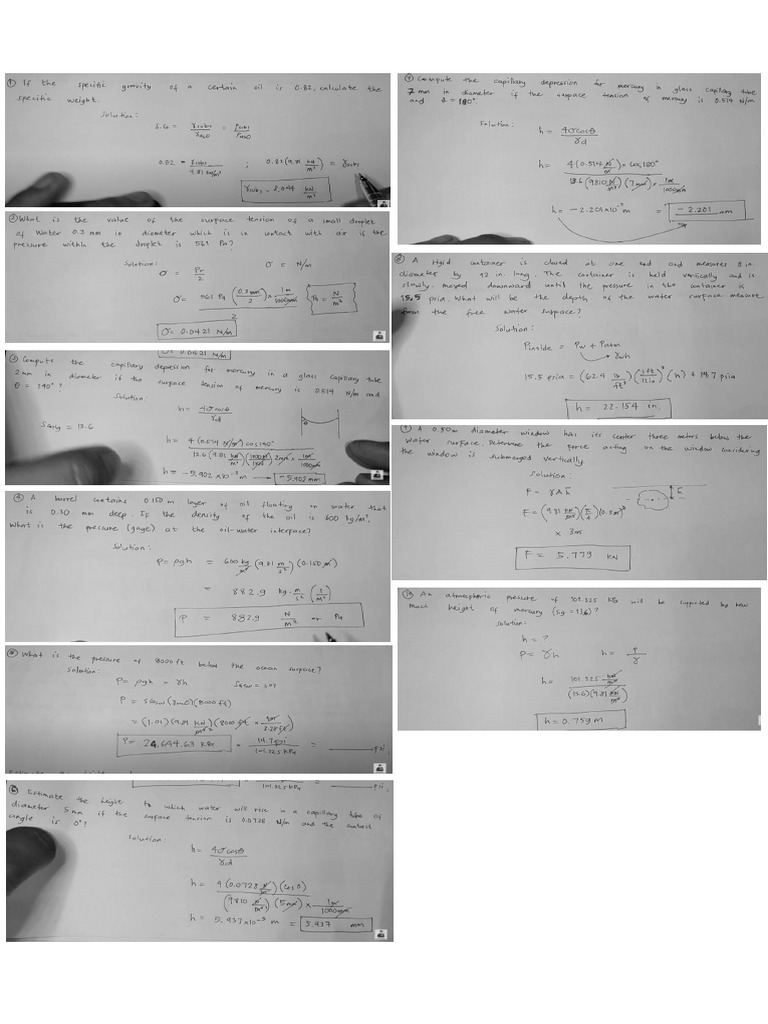 ① If the specific gravity of a certain oil is 0.82, calculate the
specific weight.
Solution:
S.G = γsubs/γH2O = ρsubs/ρH2O
0.82 = γsubs/9.81 kN/m³ ; 0.82 (9.81 kN/m³) = γsubs
γsubs = 8.044 kN/m³
② What is the value of the surface tension of a small droplet
of water 0.3 mm in diameter which is in contact with air if the
pressure within the droplet is 561 Pa?
Solution:
σ = Pr/2 σ = N/m
σ = 561 Pa (0.3mm/2) × 1m/1000mm / 2 {Pa = N/m²}
σ = 0.0421 N/m
σ = 0.0421 N/m
③ Compute the capillary depression for mercury in a glass capillary tube
2mm in diameter if the surface tension of mercury is 0.514 N/m and
θ = 140°?
Solution:
h = 4σcosθ/γd
SGHg = 13.6
h = 4 (0.514 N/m) cos140° / 13.6 (9.81 kN/m³)(1000N/1kN) 2mm × 1m/1000mm
h = -5.902 × 10⁻³ m → -5.902 mm
④ A barrel contains 0.150 m layer of oil floating on water that
is 0.30 mm deep. If the density of the oil is 600 kg/m³,
what is the pressure (gage) at the oil-water interface?
Solution:
P = ρgh = 600 kg/m³ (9.81 m/s²)(0.150 m)
= 882.9 kg·m/s² (1/m²)
P = 882.9 N/m² or Pa
⑤ What is the pressure of 8000 ft below the ocean surface?
Solution:
P = ρgh = γh
P = (8000 ft)
= (1.01)(9.81 kN/m³)(8000 ft × 1m/3.28ft)
P = 24,694.63 kPa × 14.7psi/101.325 kPa = psi.
101.325 kPa = psi.
⑥ Estimate the height to which water will rise in a capillary tube of
diameter 5mm if the surface tension is 0.0728 N/m and the contact
angle is 0°?
Solution:
h = 4σcosθ/γd
h = 4 (0.0728 N/m)(cos 0) / (9810 N/m³)(5mm) × 1m/1000mm
h = 5.937 × 10⁻³ m = 5.937 mm
Compute the capillary depression for mercury in glass capillary tube
7 mm in diameter if the surface tension of mercury is 0.514 N/m
and = 180°
Solution:
h = 4σcosθ/γd
h = 4 (0.514 N/m) × cos 180° / 13.6 (9810 N/m³)(7mm) × 1m/1000mm
h = -2.201 × 10⁻³ m = -2.201 mm
⑧ A container is closed at one end and measures 8 in
diameter by 42 in. long. The container is held vertically and is
slowly moved downward until the pressure in the container is
15.5 psia. What will be the depth of the water surface measure
from the free water surface?
Solution:
Pinside = Pw + Patm
γwh
15.5 psia = (62.4 lb/ft³)(1ft/12in)³ (h) + 14.7 psia
h = 22.154 in.
A 0.50m diameter window has its center three meters below the
water surface. Determine the force acting on the window considering
the window is submerged vertically.
Solution:
F = γAh̄
F = (9.81 kN/m³)(π/4)(0.5m)²
× 3m
h̄
F = 5.779 kN
⑩ An atmospheric pressure of 101.325 kPa will be supported by how
much height of mercury (sg = 13.6)?
Solution:
h = ?
P = γh h = P/γ
h = 101.325 kN/m² / (13.6)(9.81 kN/m³)
h = 0.759 m